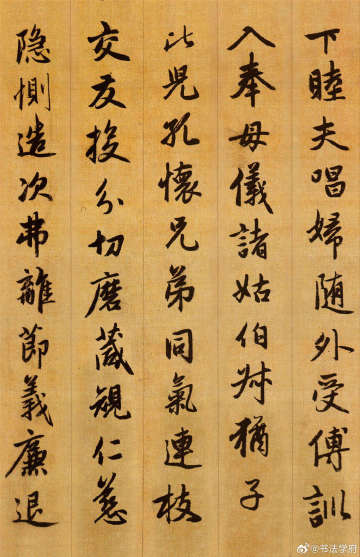 下睦夫唱婦随外受傅訓
入奉母儀諸姑伯叔猶子
比兒孔懷兄弟同氣連枝
交友投分切磨箴規仁慈
隐惻造次弗離節義廉退
@书法学府